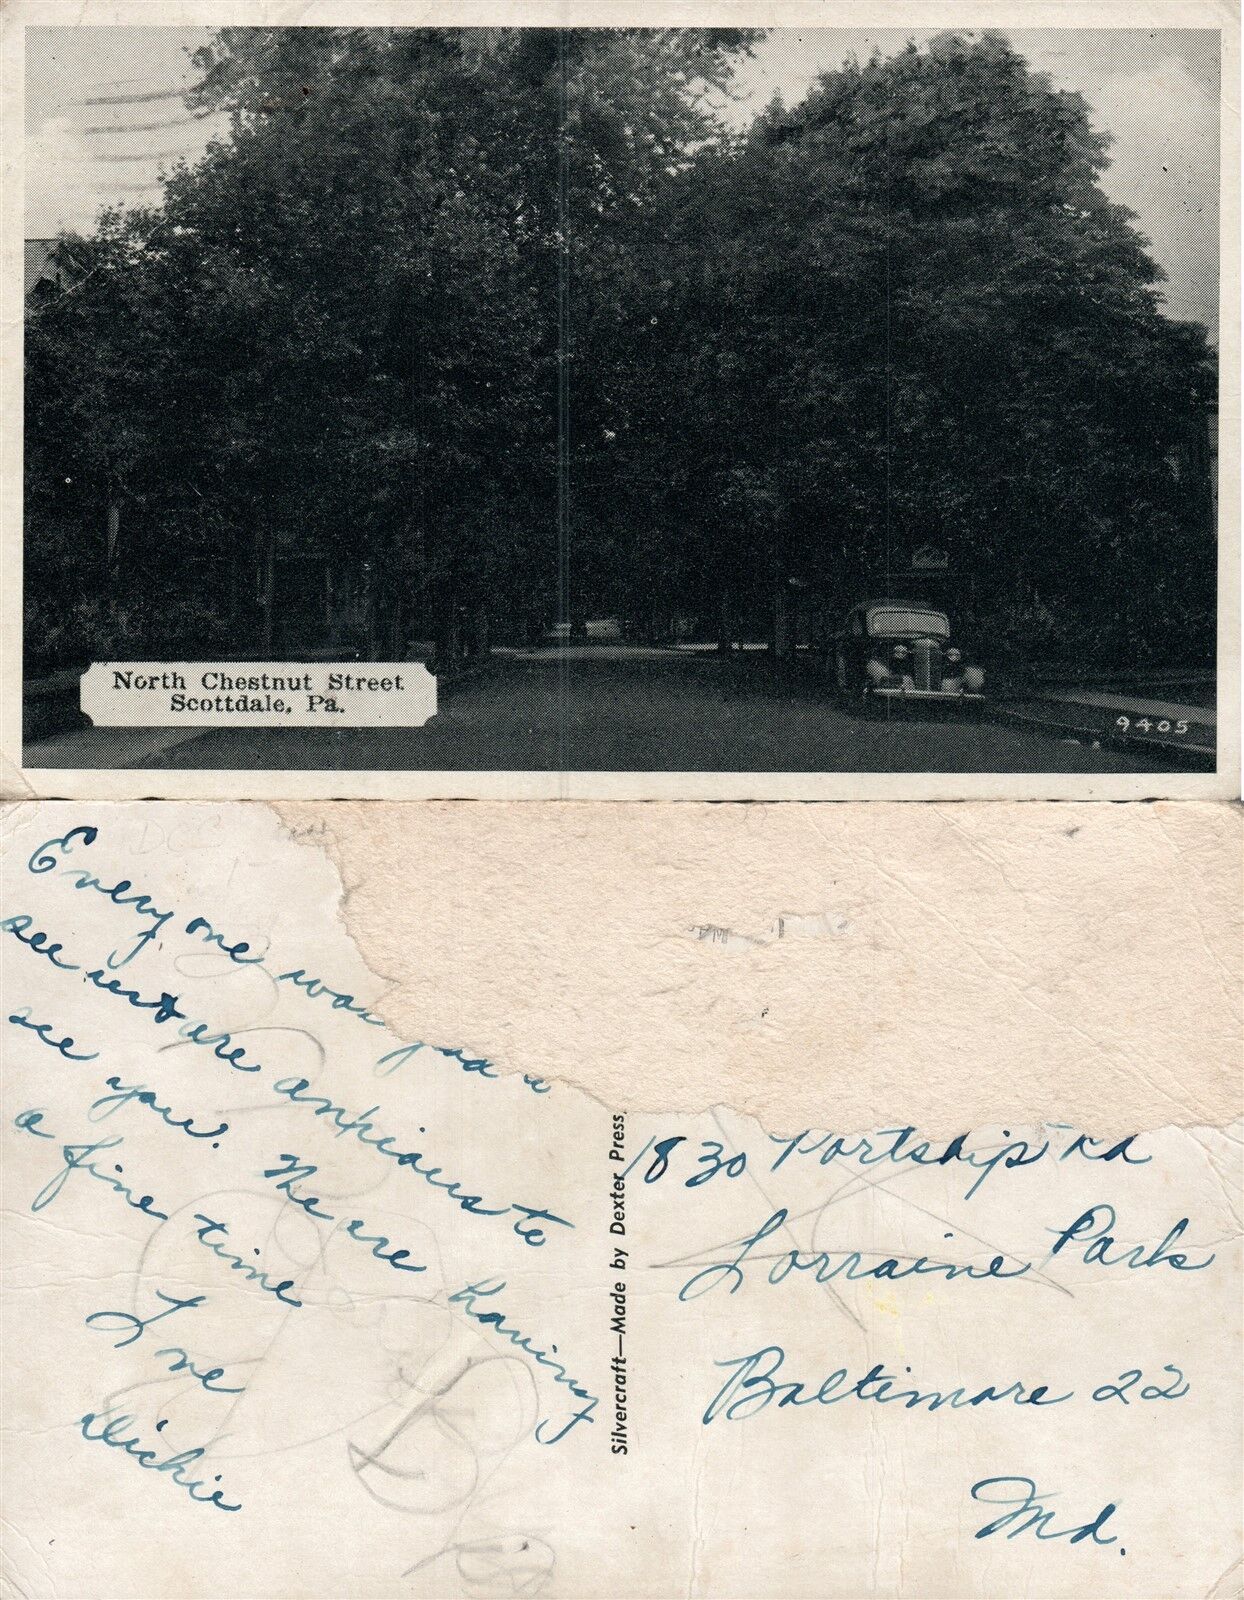 North Chestnut Street
Scottdale, Pa.
9405
Every one was glad to
see us & are anxious to
see you. We are having
a fine time
Love
Dickie
Silvercraft—Made by Dexter Press,
1830 Portship Rd
Lorraine Park
Baltimore 22
Md.